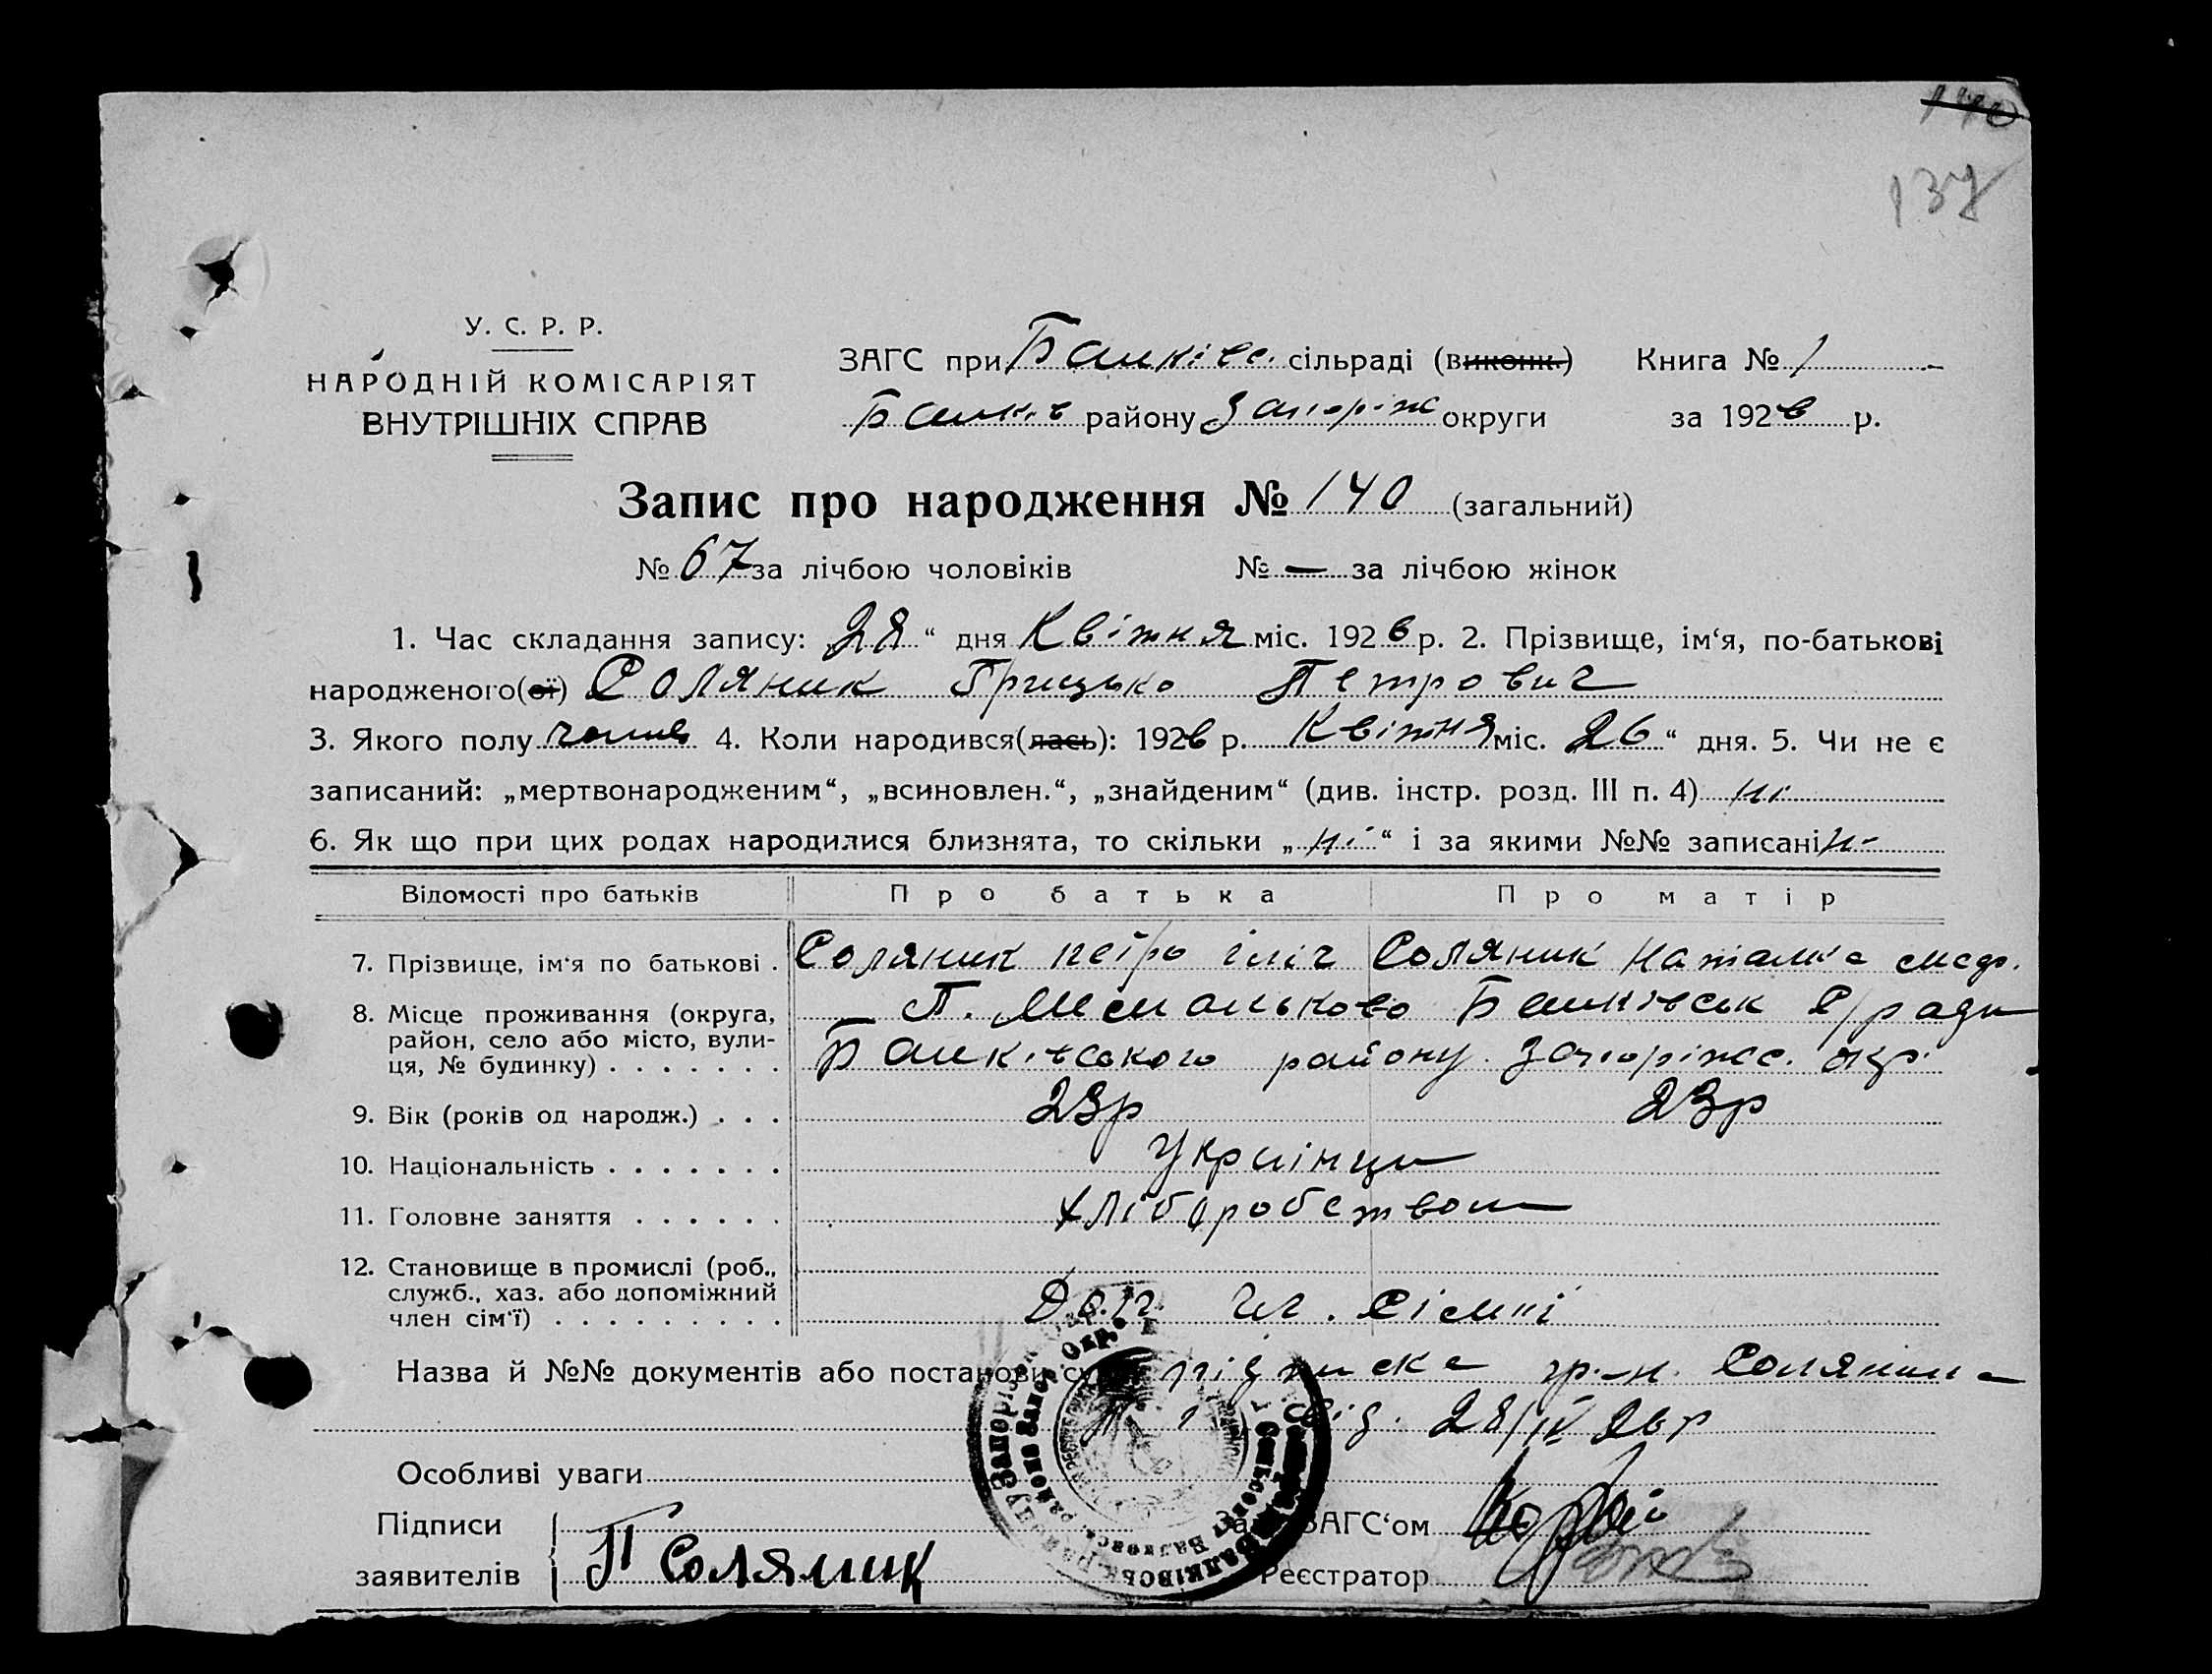 140
137
У. С. Р. Р.
НАРОДНІЙ КОМІСАРІЯТ
ВНУТРІШНІХ СПРАВ
ЗАГС при Балківс. сільраді (виконк.) Книга № 1
Балків району Запоріж округи за 1926 р.
Запис про народження № 140 (загальний)
№ 67 за лічбою чоловіків № — за лічбою жінок
1. Час складання запису: „28“ дня Квітня міс. 1926 р. 2. Прізвище, ім‘я, по-батькові
народженого(ої) Соляник Грицько Петрович
3. Якого полу чолов 4. Коли народився(лась): 1926 р. Квітня міс. „26“ дня. 5. Чи не є
записаний: „мертвонародженим“, „всиновлен.“, „знайденим“ (див. інстр. розд. III п. 4) ні
6. Як що при цих родах народилися близнята, то скільки „ні“ і за якими №№ записані ні
Відомості про батьків Про батька Про матір
7. Прізвище, ім‘я по батькові . Соляник Петро Ілліч Соляник Наталка
8. Місце проживання (округа, район, село або місто, вулиця, № будинку) . . . . . . . П. Балківськ с/ради
Балківського району Запоріжс. окр.
9. Вік (років од народж.) . . . 23р 23р
10. Національність . . . . . . . Українци
11. Головне заняття . . . . . . Хліборобством
12. Становище в промислі (роб., служб., хаз. або допоміжний член сім‘ї) . . . . . . . . . чл. сіємні
Назва й №№ документів або постанови підписка гр-н. Соляника
від. 28/IV 26р
Особливі уваги
Підписи
заявителів П Соляник
ЗАГС‘ом
Реєстратор